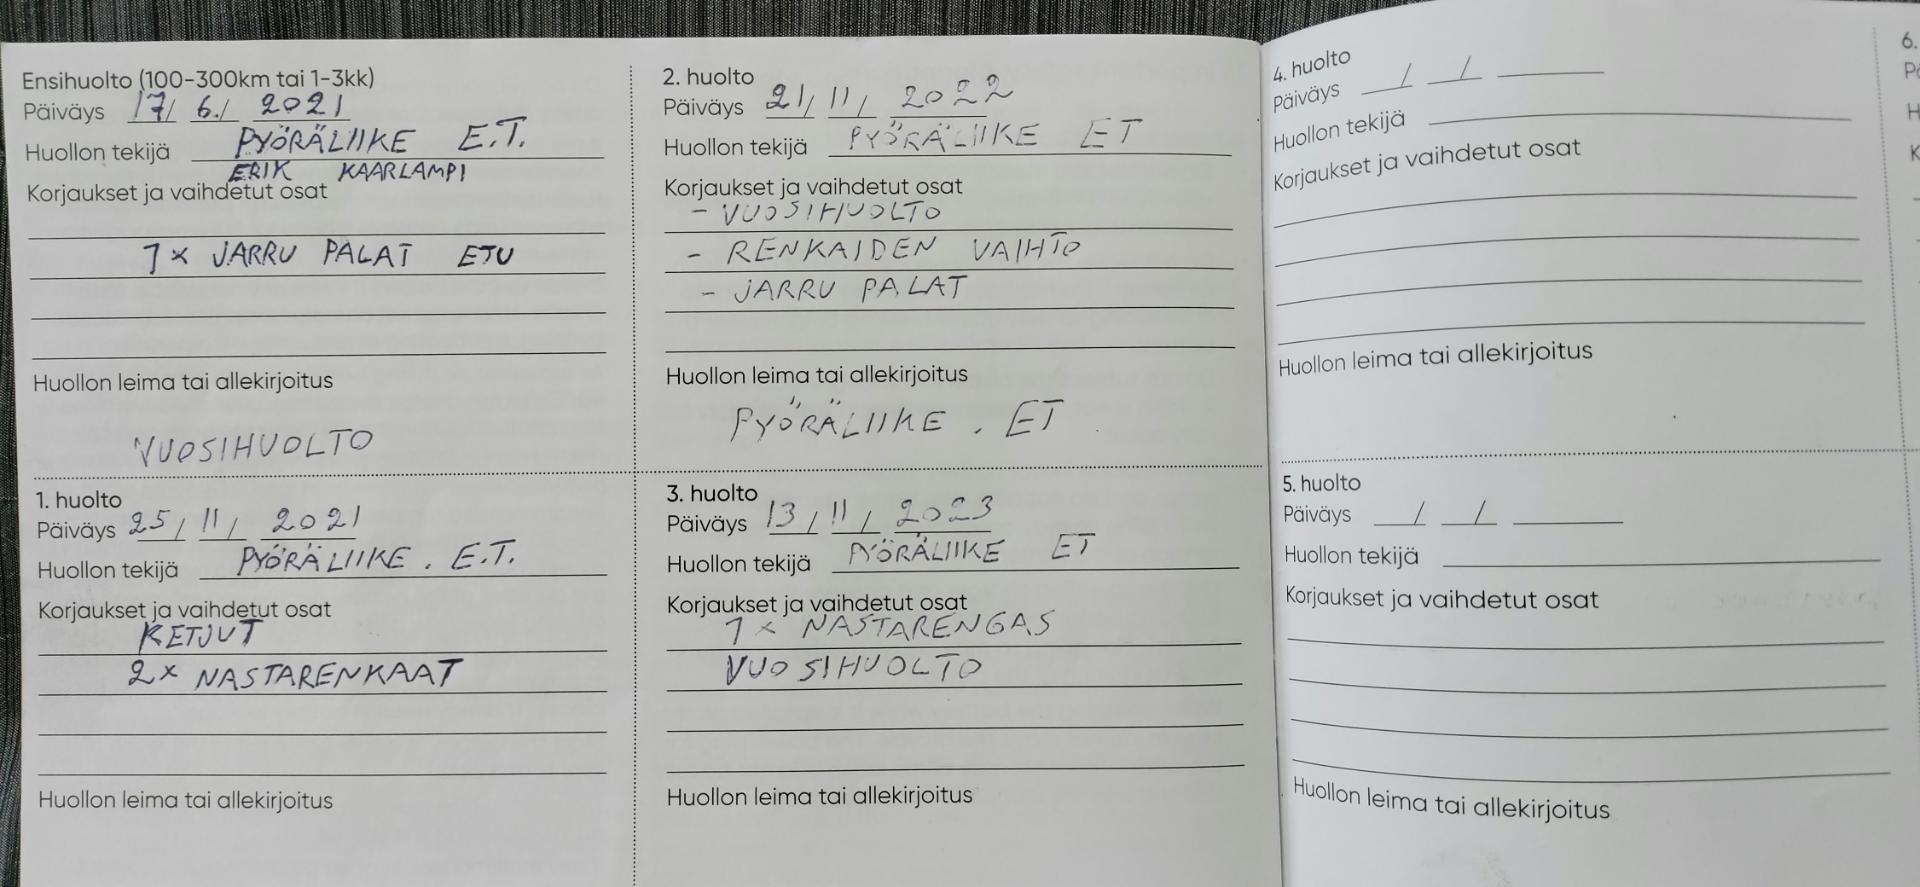 Ensihuolto (100-300km tai 1-3kk)
Päiväys 17/ 6./ 2021
Huollon tekijä PYÖRÄLIIKE E.T.
ERIK KAARLAMPI
Korjaukset ja vaihdetut osat
1x JARRU PALAT ETU
Huollon leima tai allekirjoitus
VUOSIHUOLTO
1. huolto
Päiväys 25/ 11/ 2021
Huollon tekijä PYÖRÄLIIKE . E.T.
Korjaukset ja vaihdetut osat
KETJUT
2x NASTARENKAAT
Huollon leima tai allekirjoitus
2. huolto
Päiväys 21/ 11/ 2022
Huollon tekijä PYÖRÄLIIKE ET
Korjaukset ja vaihdetut osat
- VUOSIHUOLTO
- RENKAIDEN VAIHTO
- JARRU PALAT
Huollon leima tai allekirjoitus
PYÖRÄLIIKE . ET
3. huolto
Päiväys 13/ 11/ 2023
Huollon tekijä PYÖRÄLIIKE ET
Korjaukset ja vaihdetut osat
1x NASTARENGAS
VUOSIHUOLTO
Huollon leima tai allekirjoitus
4. huolto
Päiväys / /
Huollon tekijä
Korjaukset ja vaihdetut osat
Huollon leima tai allekirjoitus
5. huolto
Päiväys / /
Huollon tekijä
Korjaukset ja vaihdetut osat
Huollon leima tai allekirjoitus
6.